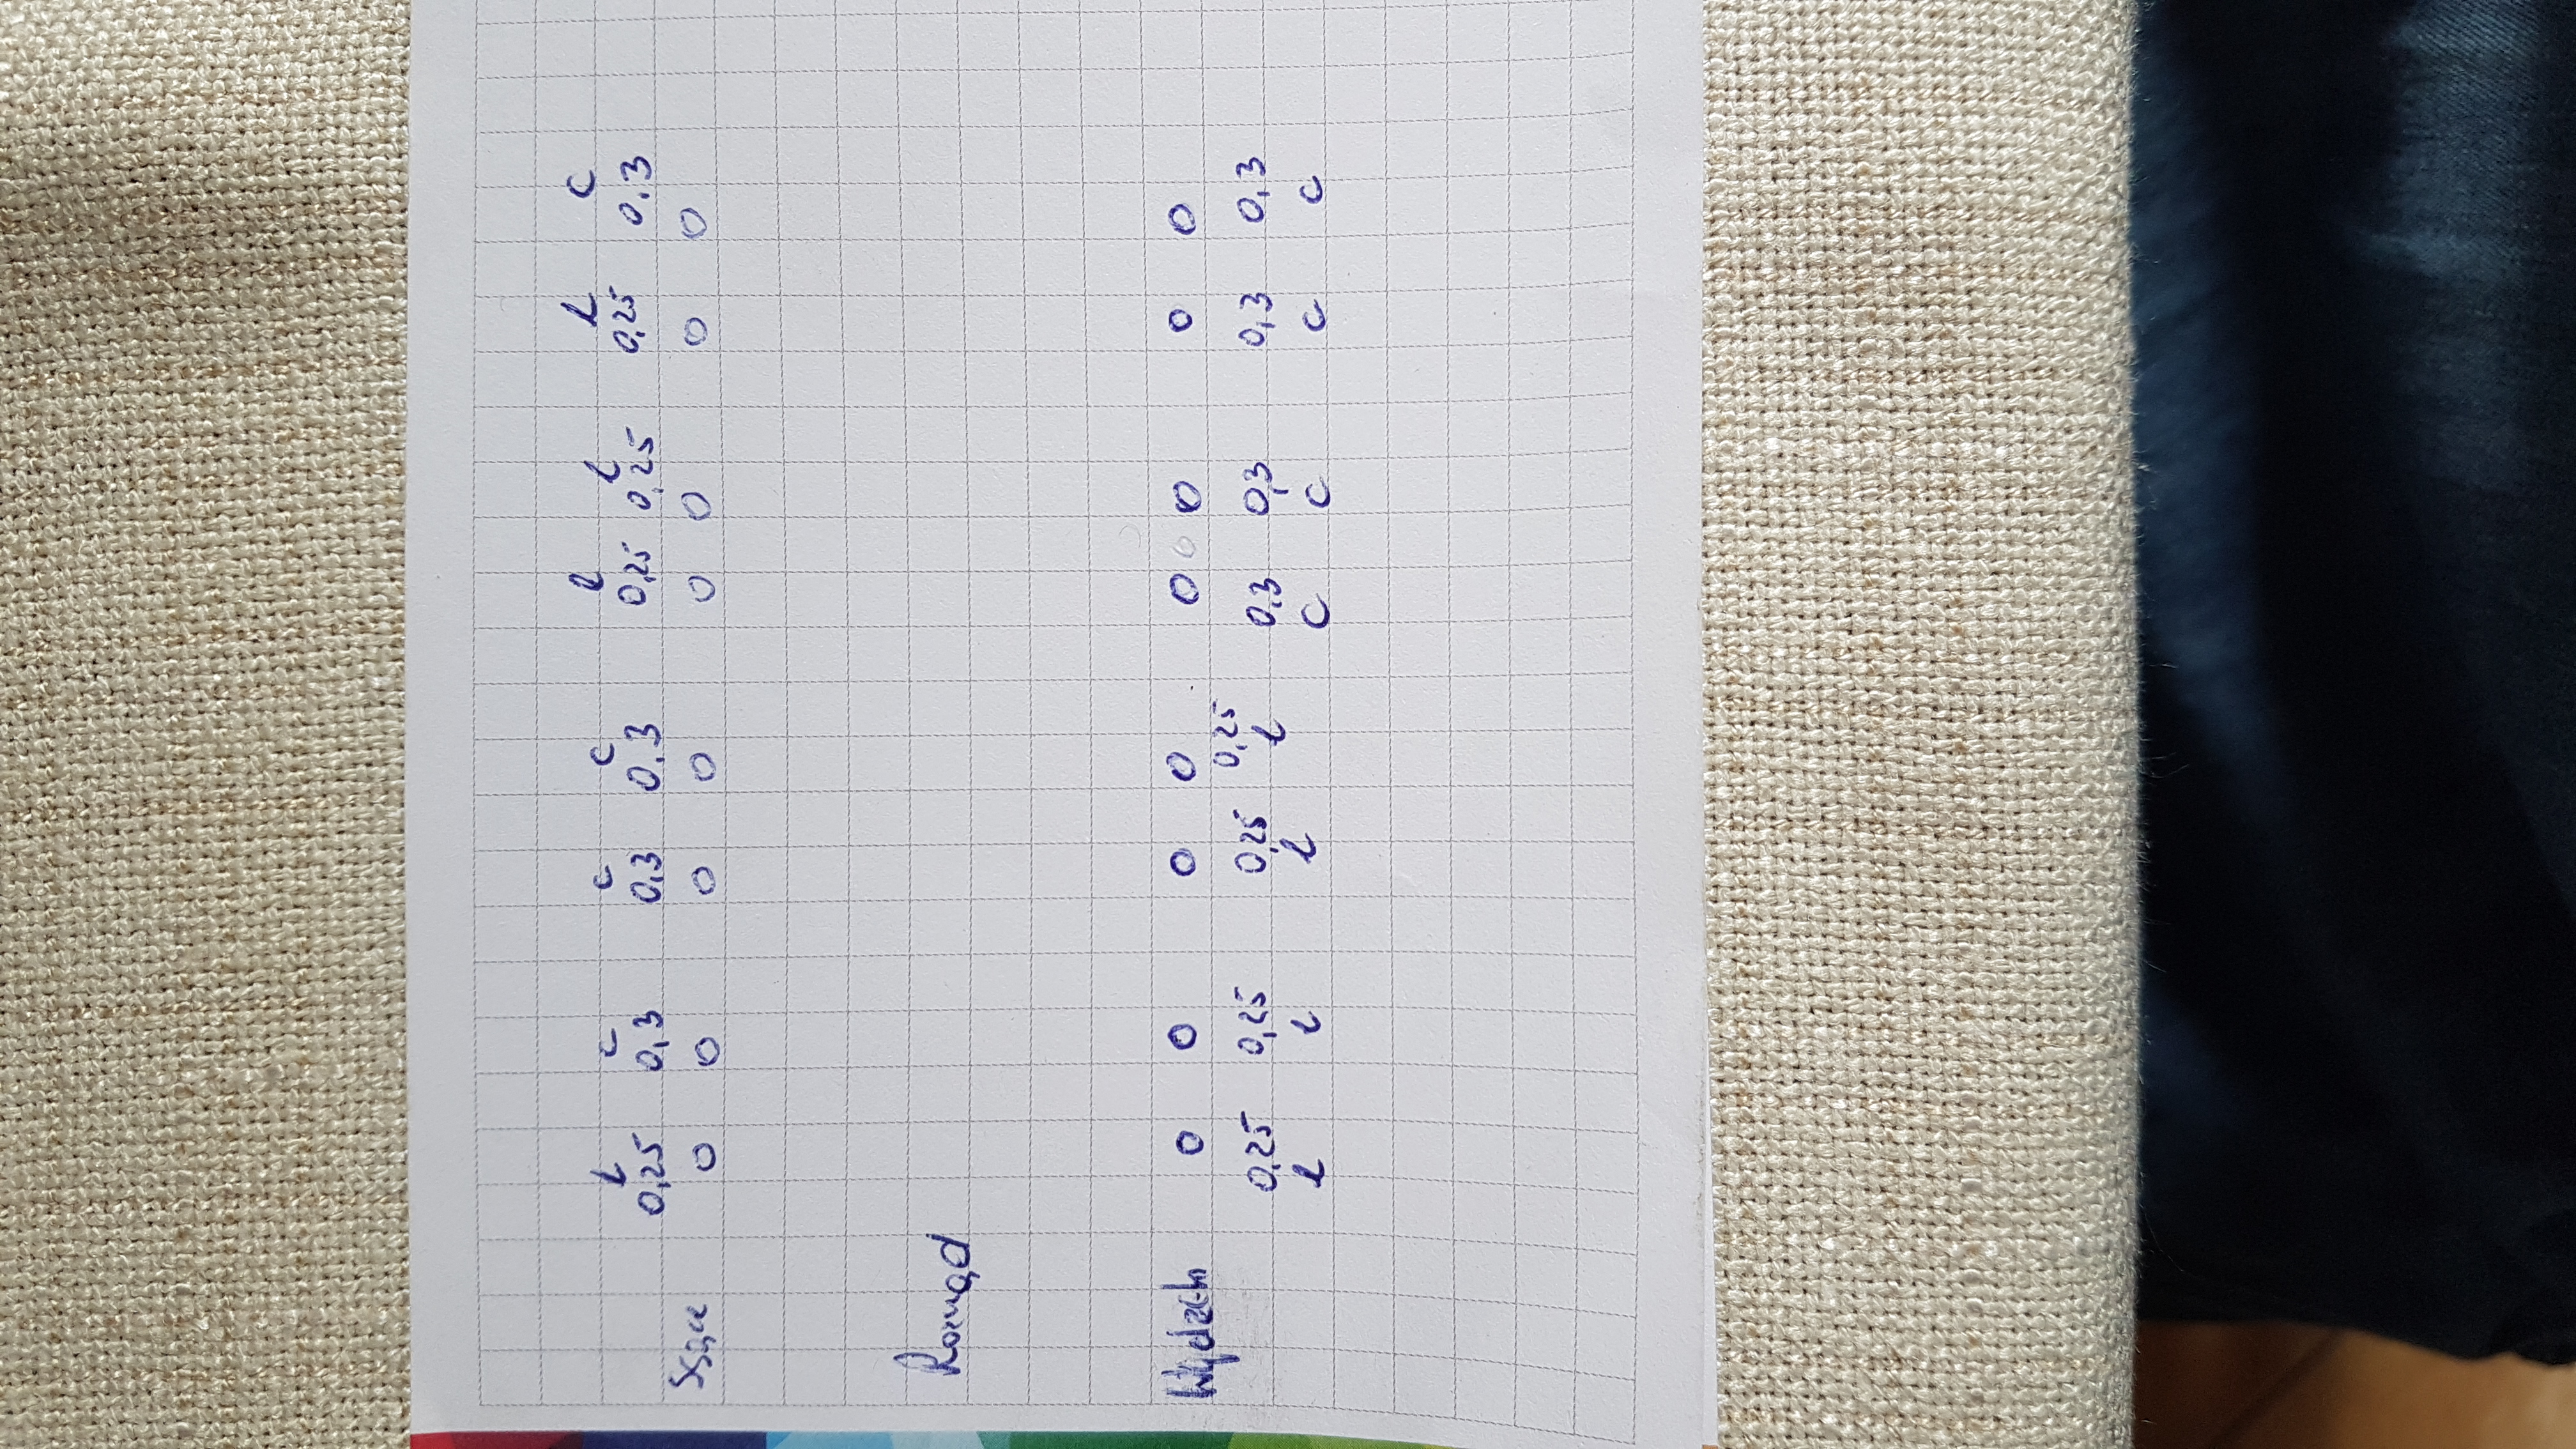 L c c c L L L c
0,25 0,3 0,3 0,3 0,25 0,25 0,25 0,3
Ssące 0 0 0 0 0 0 0 0
Rozrząd
Wydech 0 0 0 0 0 0 0 0
0,25 0,25 0,25 0,25 0,3 0,3 0,3 0,3
L L L L c c c c